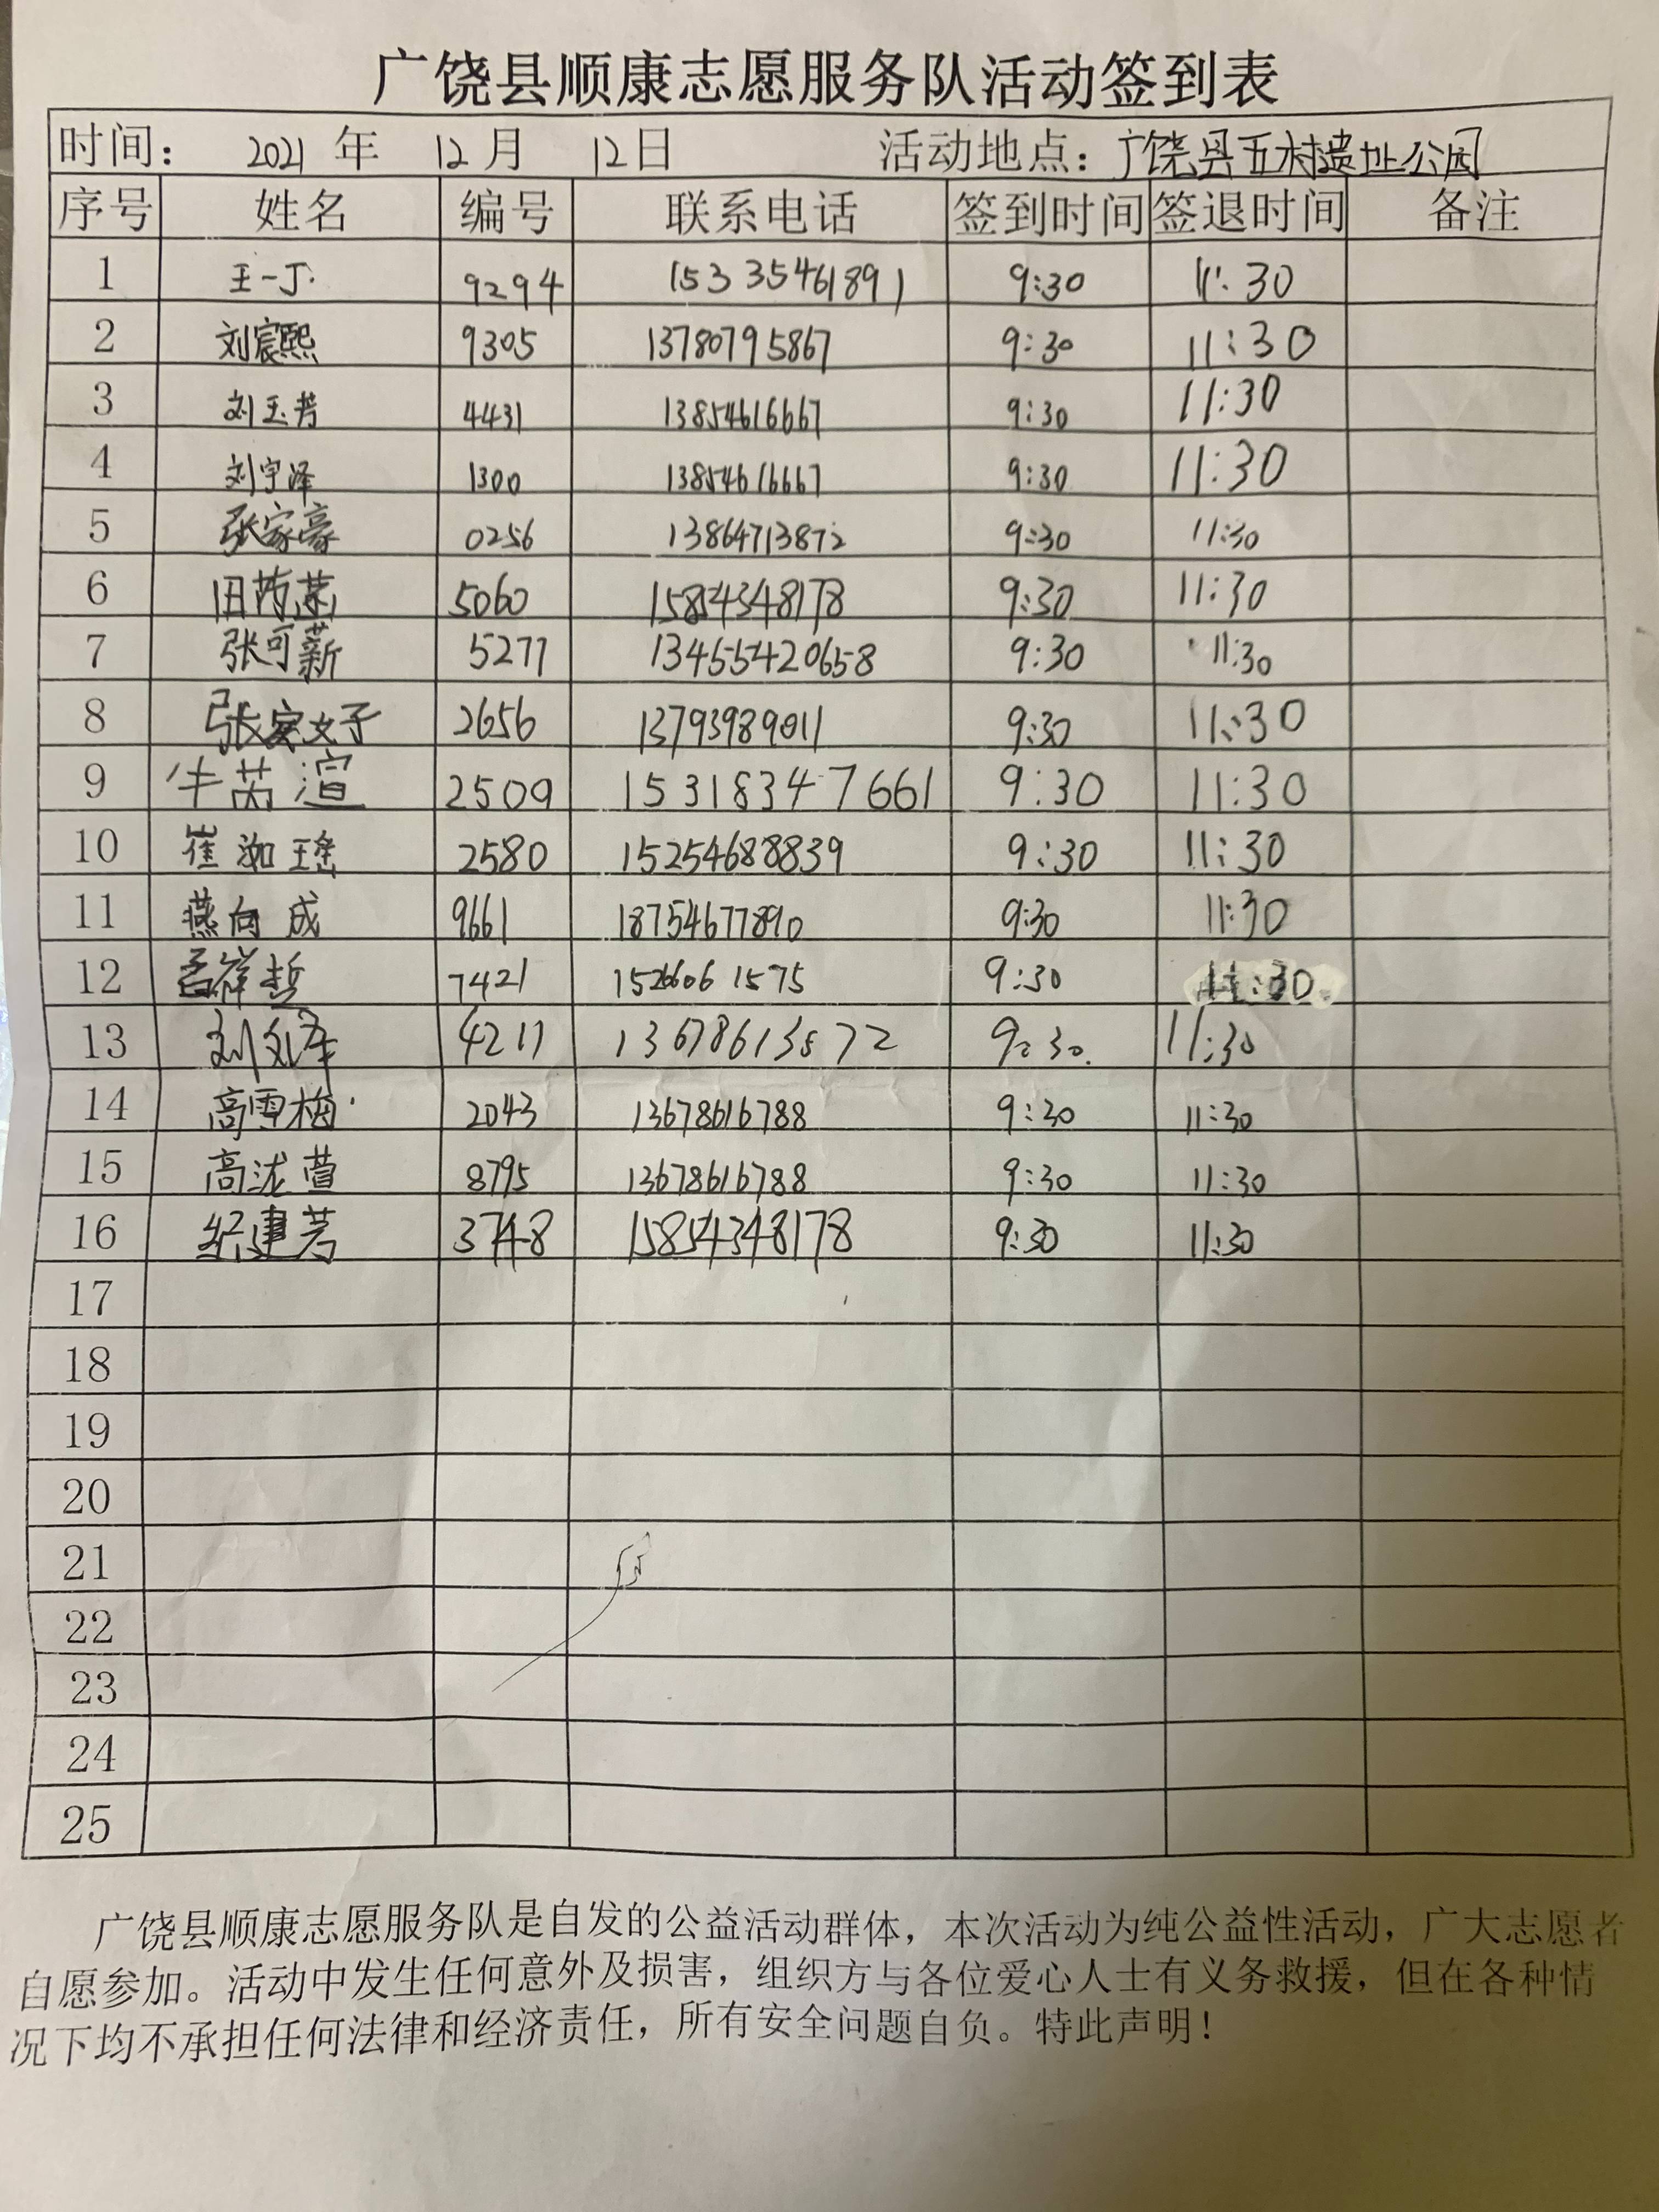 广饶县顺康志愿服务队活动签到表
时间： 2021 年 12 月 12日 活动地点：广饶县五村遗址公园
序号 姓名 编号 联系电话 签到时间 签退时间 备注
1 王一丁 9294 15335461891 9:30 11:30
2 刘宸熙 9305 13780795867 9:30 11:30
3 刘玉芳 4431 13854616667 9:30 11:30
4 刘宇泽 1300 13854616667 9:30 11:30
5 张家豪 0256 13864713872 9:30 11:30
6 5060 15854348178 9:30 11:30
7 张可薪 5277 13455420658 9:30 11:30
8 2656 13793989011 9:30 11:30
9 牛芮渲 2509 15318347661 9:30 11:30
10 崔洳瑶 2580 15254688839 9:30 11:30
11 燕向成 9661 18754677890 9:30 11:30
12 孟祥哲 7421 15266061575 9:30 11:30
13 4211 9:30. 11:30
14 高雪梅 2043 13678616788 9:30 11:30
15 高泷萱 8795 13678616788 9:30 11:30
16 纪建芳 3748 15854348178 9:30 11:30
17
18
19
20
21
22
23
24
25
广饶县顺康志愿服务队是自发的公益活动群体，本次活动为纯公益性活动，广大志愿者
自愿参加。活动中发生任何意外及损害，组织方与各位爱心人士有义务救援，但在各种情
况下均不承担任何法律和经济责任，所有安全问题自负。特此声明！